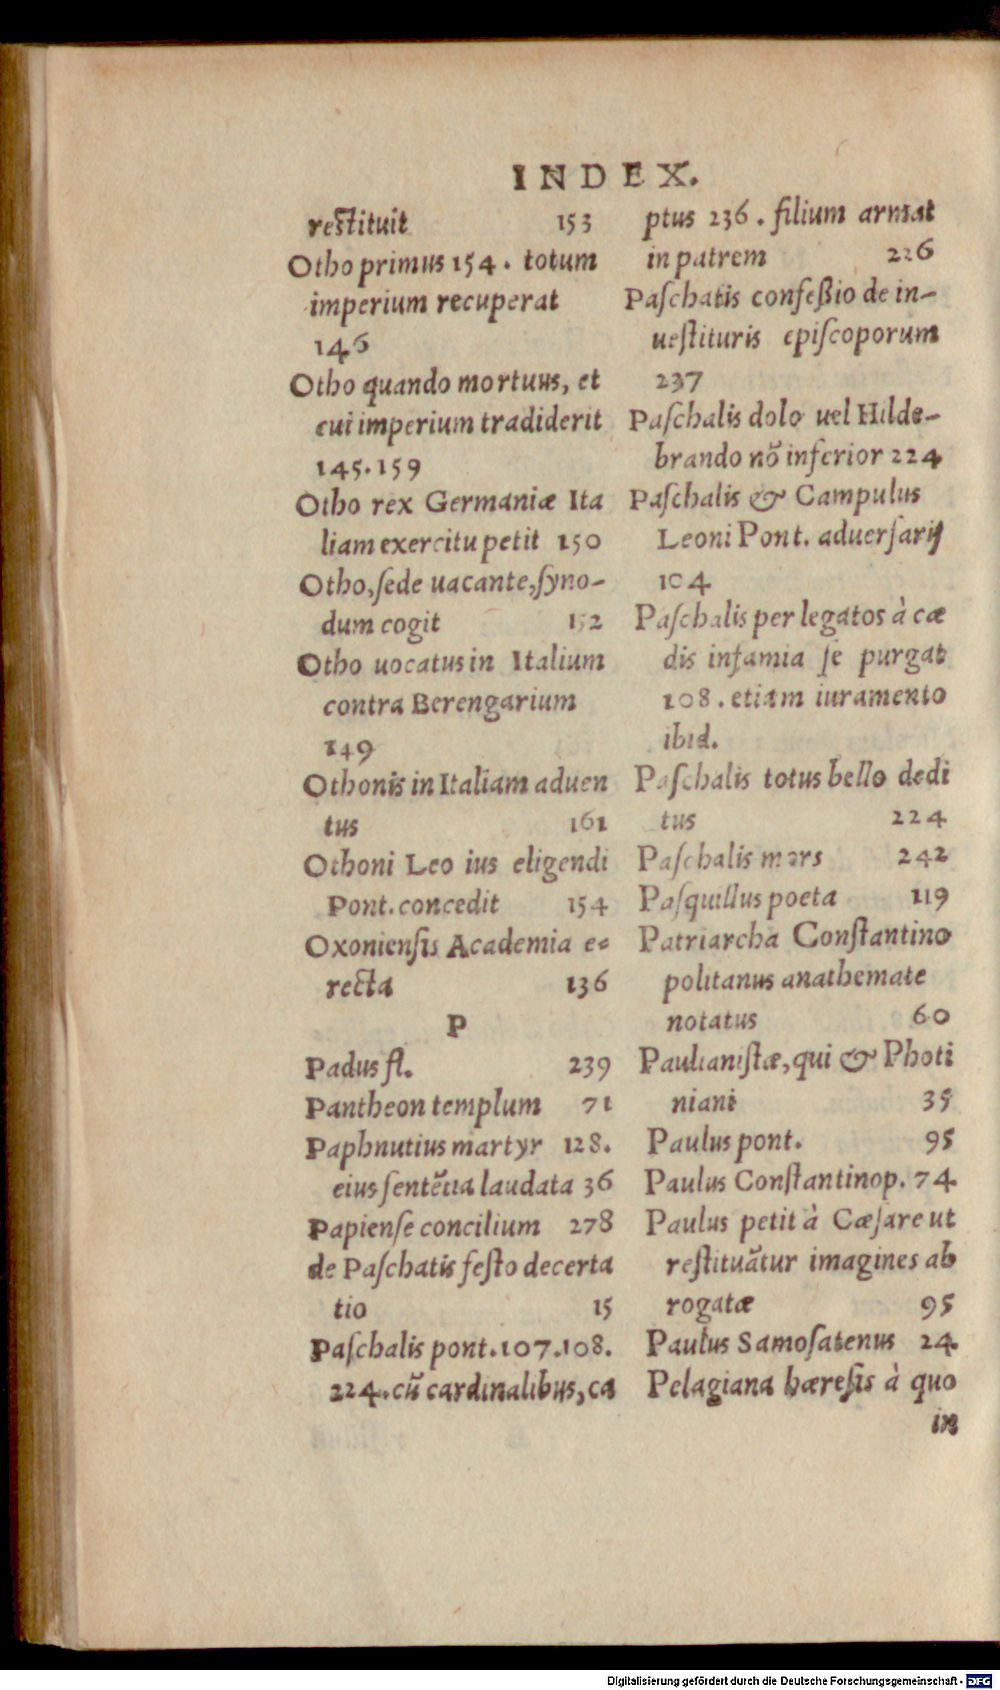 INDEX.
reſtituit 153
Otho primus 154. totum
imperium recuperat
146
Otho quando mortuus, et
cui imperium tradiderit
145.159
Otho rex Germaniæ Ita
liam exercitu petit 150
Otho, ſede uacante, ſyno-
dum cogit 152
Otho uocatus in Italium
contra Berengarium
149
Othonis in Italiam aduen
tus 161
Othoni Leo ius eligendi
Pont. concedit 154
Oxonienſis Academia e-
recta 136
P
Padus fl. 239
Pantheon templum 71
Paphnutius martyr 128.
eius ſentẽtia laudata 36
Papienſe concilium 278
de Paſchatis feſto decerta
tio 15
Paſchalis pont. 107.108.
224. cũ cardinalibus, ca
ptus 236. filium armat
in patrem 226
Paſchatis confeßio de in-
ueſtituris epiſcoporum
237
Paſchalis dolo uel Hilde-
brando nõ inferior 224
Paſchalis & Campulus
Leoni Pont. aduerſarij
104
Paſchalis per legatos à cæ
dis infamia ſe purgat
108. etiam iuramento
ibid.
Paſchalis totus bello dedi
tus 224
Paſchalis mors 242
Paſquillus poeta 119
Patriarcha Conſtantino
politanus anathemate
notatus 60
Paulianiſtæ, qui & Photi
niani 35
Paulus pont. 95
Paulus Conſtantinop. 74
Paulus petit à Cæſare ut
reſtituãtur imagines ab
rogatæ 95
Paulus Samoſatenus 24.
Pelagiana hæreſis à quo
in
Digitalisierung gefördert durch die Deutsche Forschungsgemeinschaft - DFG